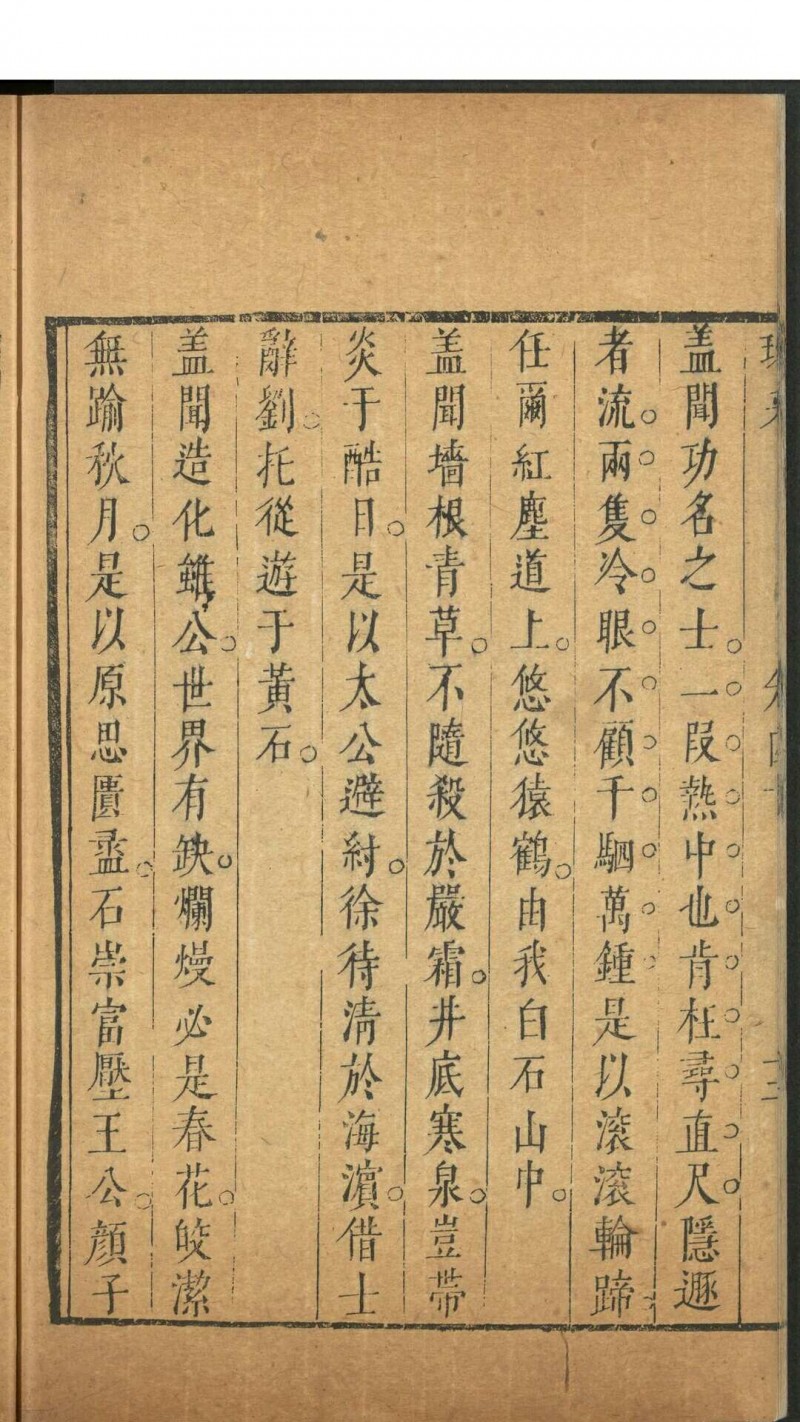 盖聞功名之士。一段熱中也肯枉尋直尺隱遯
者流。兩隻冷眼不顧千駟萬鍾是以滚滚輪蹄
任爾紅塵道上。悠悠猿鶴。由我白石山中。
盖聞墻根青草。不隨殺於嚴霜。井底寒泉。豈帶
炎于酷日。是以太公避紂。徐待清於海濵。借士
辭劉。托從遊于黃石。
盖聞造化雖公。世界有缺。爛熳必是春花。皎潔
無踰秋月。是以原思匱盉。石崇富壓王公。顔子